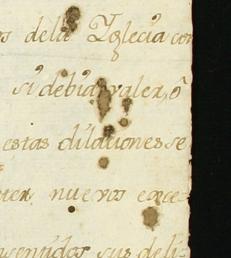 s dela Yglecia con
si debia valer, ô
estas dilaciones se
nuevos exce-
sus deli-